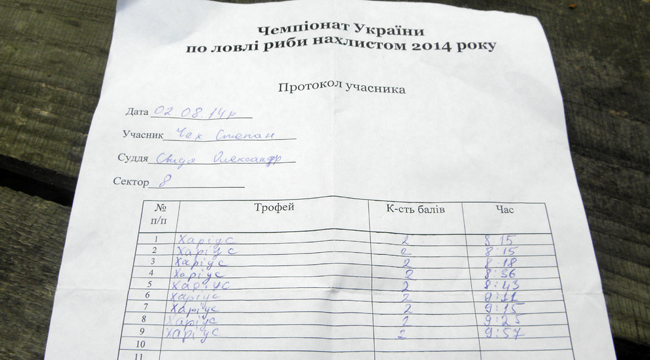 Чемпіонат України
по ловлі риби нахлистом 2014 року
Протокол учасника
Дата 02 08 14р
Учасник Чех Степан
Суддя Свида Олександр
Сектор 8
№ п/п Трофей К-сть балів Час
1 Харіус 2 8:15
2 Харіус 2 8:15
3 Харіус 2 8:18
4 Харіус 2 8:36
5 Харіус 2 8:43
6 Харіус 2 9:11
7 Харіус 2 9:15
8 Харіус 2 9:23
9 Харіус 2 9:57
10
11